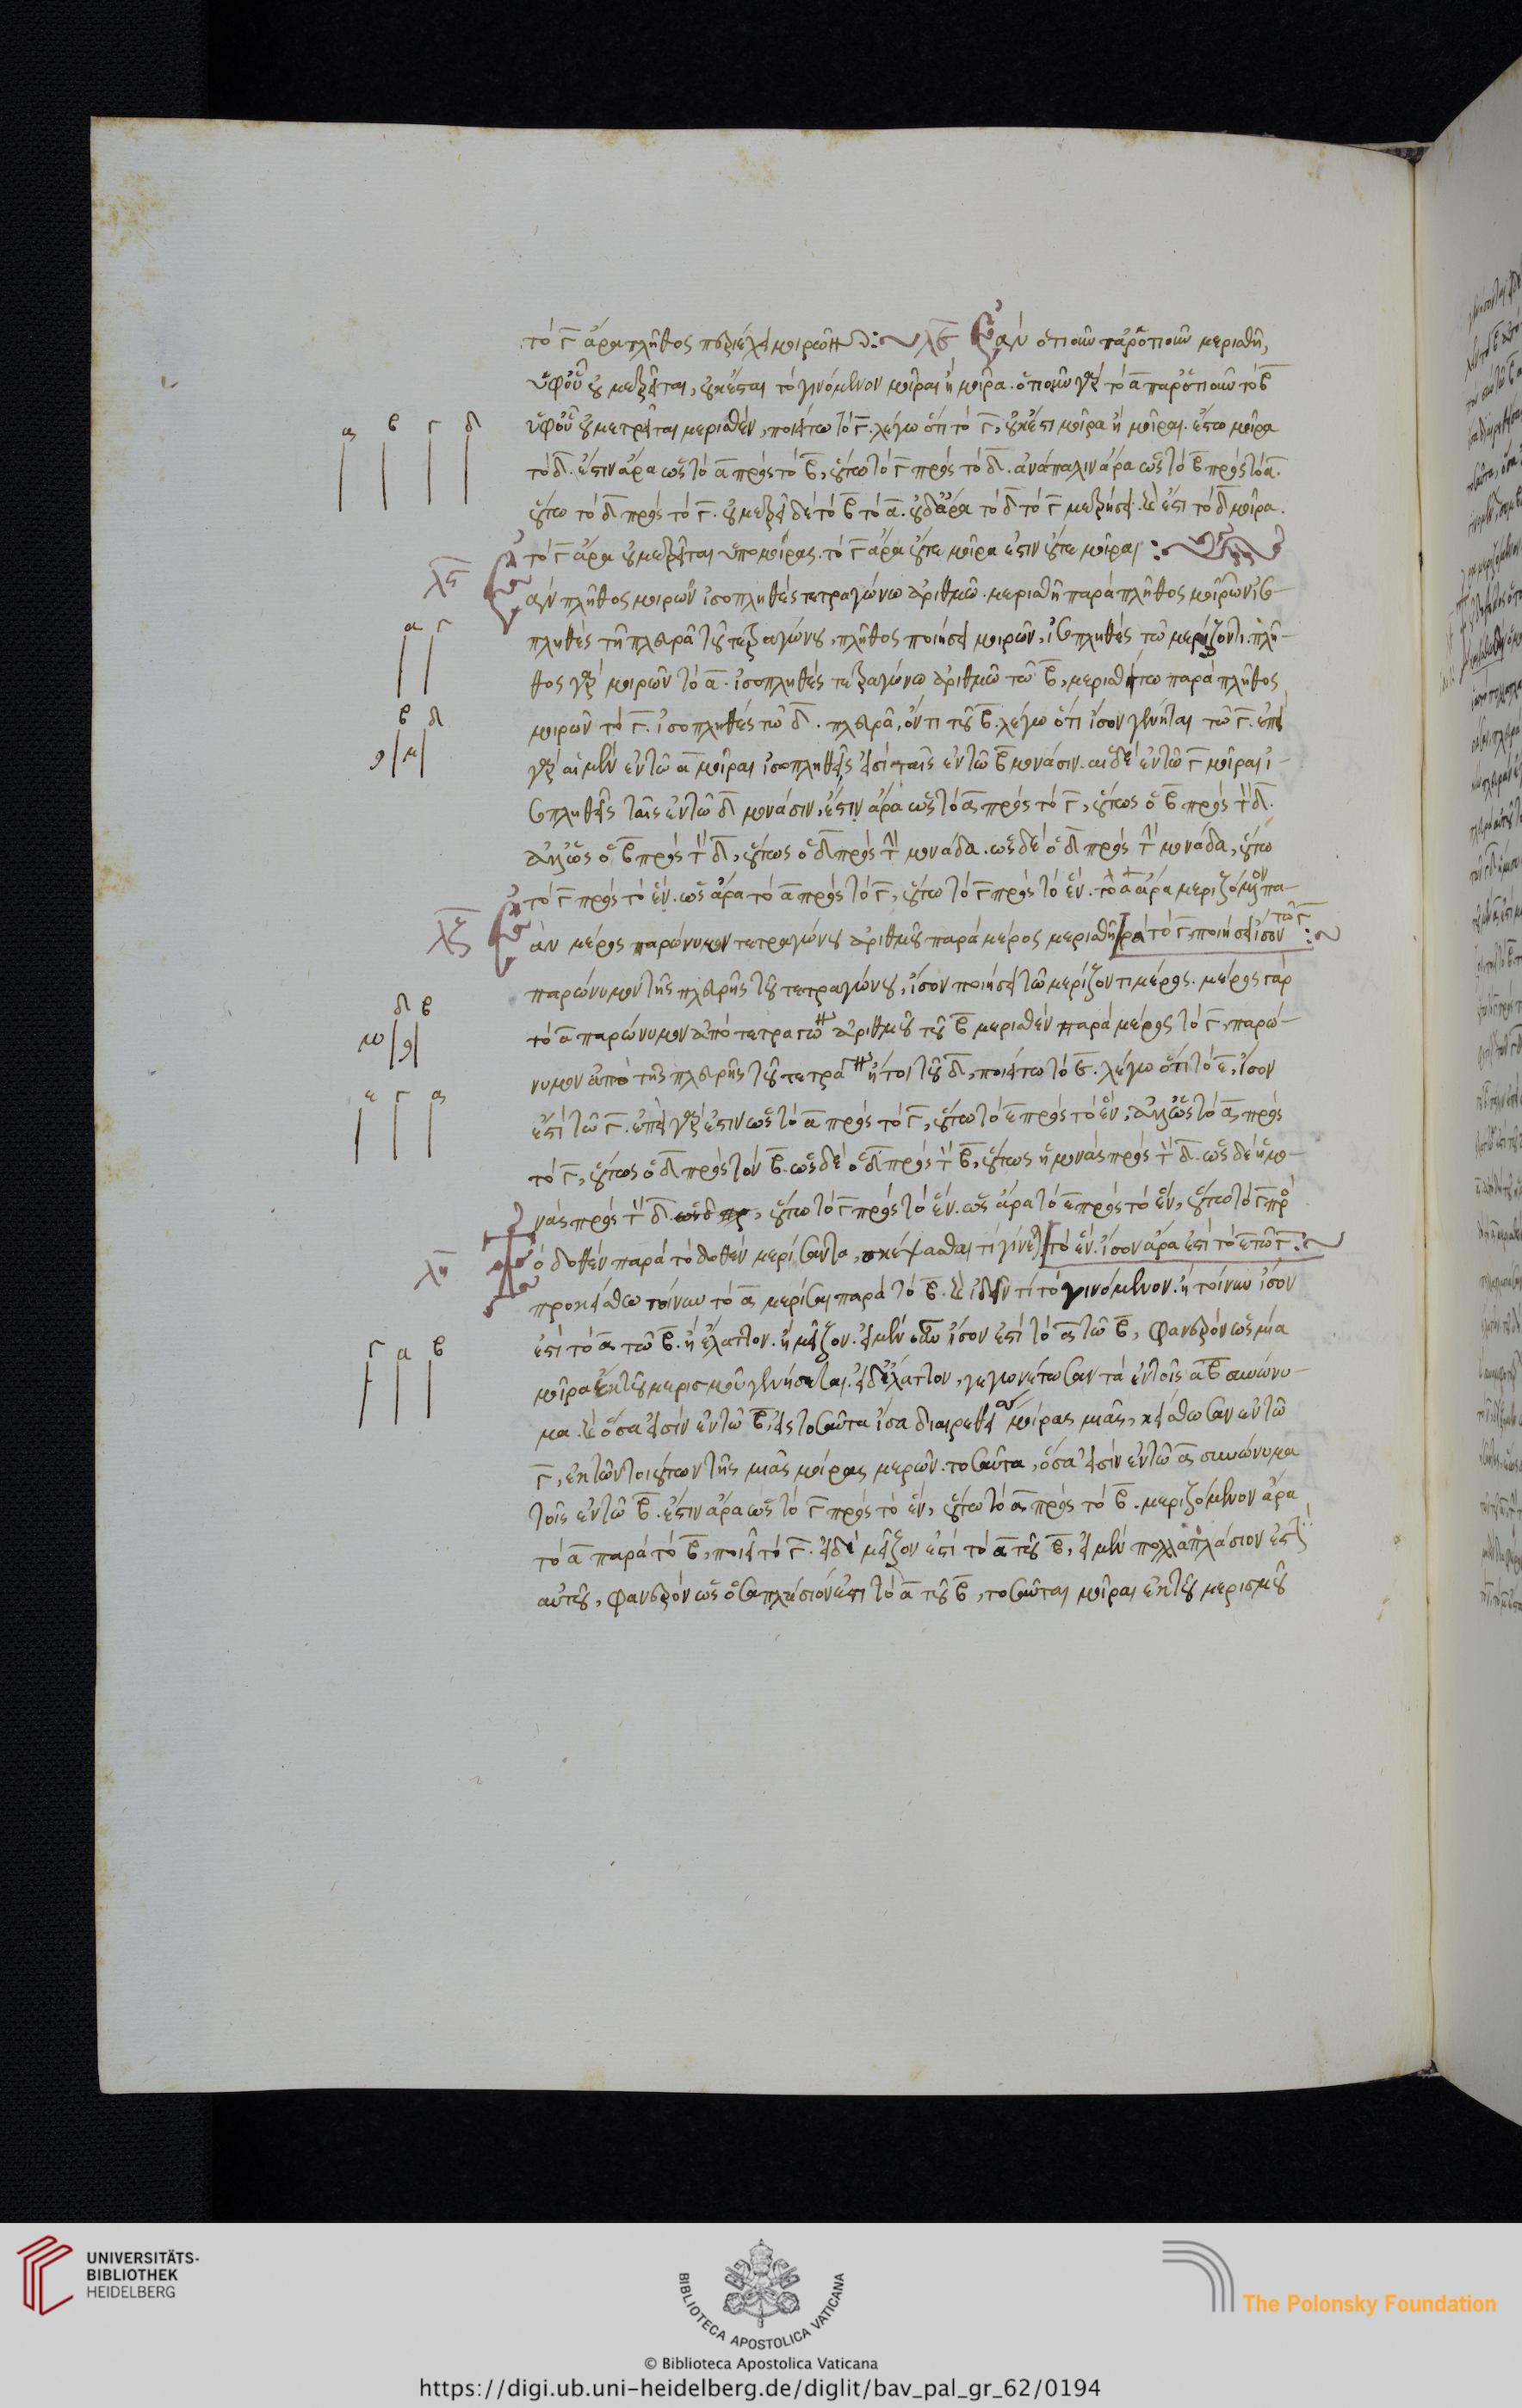 τὸ γ̅ ἄρα πλῆθος περιέχει μοιρῶν :~ λε̅ Ἐὰν ὁτιοῦν παρ' ὁτιοῦν μερισθῇ,
ὑφ' οὗ οὐ μετρεῖται, οὐκ ἔσται τὸ γινόμενον μοῖραι ἢ μοῖρα. ὁτιοῦν γὰρ τὸ α̅ παρ' ὁτιοῦν τὸ β̅
ὑφ' οὗ οὐ μετρεῖται μερισθὲν, ποιείτω τὸ γ̅. λέγω ὅτι τὸ γ̅, οὐκ ἔστι μοῖρα ἢ μοῖραι. ἔστω μοῖρα
τὸ δ̅. ἔστιν ἄρα ὡς τὸ α̅ πρὸς τὸ β̅, οὕτω τὸ γ̅ πρὸς τὸ δ̅. ἀνάπαλιν ἄρα ὡς τὸ β̅ πρὸς τὸ α̅.
οὕτω τὸ δ̅ πρὸς τὸ γ̅. οὐ μετρεῖ δὲ τὸ β̅ τὸ α̅. οὐδ' ἄρα τὸ δ̅ τὸ γ̅ μετρήσει. καὶ ἔστι τὸ δ̅ μοῖρα.
τὸ γ̅ ἄρα οὐ μετρεῖται ὑπὸ μοίρας. τὸ γ̅ ἄρα οὔτε μοῖρα ἐστιν οὔτε μοῖραι :~
λϛ̅ Ἐὰν πλῆθος μοιρῶν ἰσοπληθὲς τετραγώνῳ ἀριθμῷ. μερισθῇ παρὰ πλῆθος μοιρῶν ἰσο-
πληθὲς τῇ πλευρᾷ τοῦ τετραγώνου, πλῆθος ποιήσει μοιρῶν, ἰσοπληθὲς τῷ μερίζοντι. πλῆ-
θος γὰρ μοιρῶν τὸ α̅. ἰσοπληθὲς τετραγώνῳ ἀριθμῷ τῷ β̅, μερισθήτω παρὰ πλῆθος
μοιρῶν τὸ γ̅. ἰσοπληθὲς τῷ δ̅. πλευρᾷ, ὄντι τοῦ β̅. λέγω ὅτι ἴσον γενήσεται τῷ γ̅. ἐπεὶ
γὰρ αἱ μὲν ἐν τῷ α̅ μοῖραι ἰσοπληθεῖς εἰσὶ ταῖς ἐν τῷ β̅ μονάσιν. αἱ δὲ ἐν τῷ γ̅ μοῖραι ἰ-
σοπληθεῖς ταῖς ἐν τῷ δ̅ μονάσιν, ἔστιν ἄρα ὡς τὸ α̅ πρὸς τὸ γ̅, οὕτως ὁ β̅ πρὸς τὸν δ̅.
ἀλλ' ὡς ὁ β̅ πρὸς τὸν δ̅, οὕτως ὁ δ̅ πρὸς τὴν μονάδα. ὡς δὲ ὁ δ̅ πρὸς τὴν μονάδα, οὕτω
τὸ γ̅ πρὸς τὸ ἕν. ὡς ἄρα τὸ α̅ πρὸς τὸ γ̅, οὕτω τὸ γ̅ πρὸς τὸ ἕν. τὸ α̅ ἄρα μεριζόμενον πα-
λζ̅ Ἐὰν μέρος παρώνυμον τετραγώνου ἀριθμοῦ παρὰ μέρος μερισθῇ [ρὰ τὸ γ̅, ποιήσει ἴσον τῷ γ̅ :~
παρώνυμον τῆς πλευρῆς τοῦ τετραγώνου, ἴσον ποιήσει τῷ μερίζοντι μέρος. μέρος γὰρ
τὸ α̅ παρώνυμον ἀπὸ τετραγώνου ἀριθμοῦ τοῦ β̅ μερισθὲν παρὰ μέρος τὸ γ̅, παρώ-
νυμον ἀπὸ τῆς πλευρῆς τοῦ τετραγώνου ἤτοι τοῦ δ̅, ποιείτω τὸ ε̅. λέγω ὅτι τὸ ε̅, ἴσον
ἐστὶ τῷ γ̅. ἐπεὶ γάρ ἐστιν ὡς τὸ α̅ πρὸς τὸ γ̅, οὕτω τὸ ε̅ πρὸς τὸ ἕν, ἀλλ' ὡς τὸ α̅, πρὸς
τὸ γ̅, οὕτως ὁ δ̅ πρὸς τὸν β̅. ὡς δὲ ὁ δ̅ πρὸς τὸν β̅, οὕτως ἡ μονὰς πρὸς τὸν δ̅. ὡς δὲ ἡ μο-
νὰς πρὸς τὸν δ̅, οὕτω τὸ γ̅ πρὸς τὸ ἕν. ὡς ἄρα τὸ ε̅ πρὸς τὸ ἕν, οὕτω τὸ γ̅ πρὸς
λη̅ Τὸ δοθὲν παρὰ τὸ δοθὲν μερίσαντα, σκέψασθαι τί γίνεται [τὸ ἕν. ἴσον ἄρα ἐστὶ τὸ ε̅ τῷ γ̅ :~
προκείσθω τοίνυν τὸ α̅ μερίσαι παρὰ τὸ β̅. καὶ ἰδεῖν τί τὸ γινόμενον. ἢ τοίνυν ἴσον
ἐστὶ τὸ α̅ τῷ β̅. ἢ ἔλαττον. ἢ μεῖζον. εἰ μὲν οὖν ἴσον ἐστὶ τὸ α̅ τῷ β̅, φανερὸν ὡς μία
μοῖρα ἐκ τοῦ μερισμοῦ γενήσεται. εἰ δ' ἔλαττον, γεγονέτωσαν τὰ ἐν τοῖς α̅ β̅ συνώνυ-
μα. καὶ ὅσα εἰσὶν ἐν τῷ β̅, εἰς τοσαῦτα ἴσα διαιρεθείσης μοίρας μιᾶς, κείσθωσαν ἐν τῷ
γ̅, ἐκ τῶν τοιούτων τῆς μιᾶς μοίρας μερῶν. τοσαῦτα, ὅσα εἰσὶν ἐν τῷ α̅ συνώνυμα
τοῖς ἐν τῷ β̅. ἔστιν ἄρα ὡς τὸ γ̅ πρὸς τὸ ἕν, οὕτω τὸ α̅ πρὸς τὸ β̅. μεριζόμενον ἄρα
τὸ α̅ παρὰ τὸ β̅, ποιεῖ τὸ γ̅. εἰ δὲ μεῖζον ἐστὶ τὸ α̅ τοῦ β̅, εἰ μὲν πολλαπλάσιον ἐστὶν
αὐτοῦ, φανερὸν ὡς ὁσαπλάσιόν ἐστι τὸ α̅ τοῦ β̅, τοσαῦται μοῖραι ἐκ τοῦ μερισμοῦ
α β γ δ
α γ
β δ
δ β
ε γ α
γ α β
UNIVERSITÄTS-
BIBLIOTHEK
HEIDELBERG
BIBLIOTECA APOSTOLICA VATICANA
The Polonsky Foundation
© Biblioteca Apostolica Vaticana
https://digi.ub.uni-heidelberg.de/diglit/bav_pal_gr_62/0194